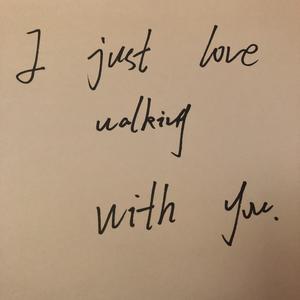 I just love
walking
with you.